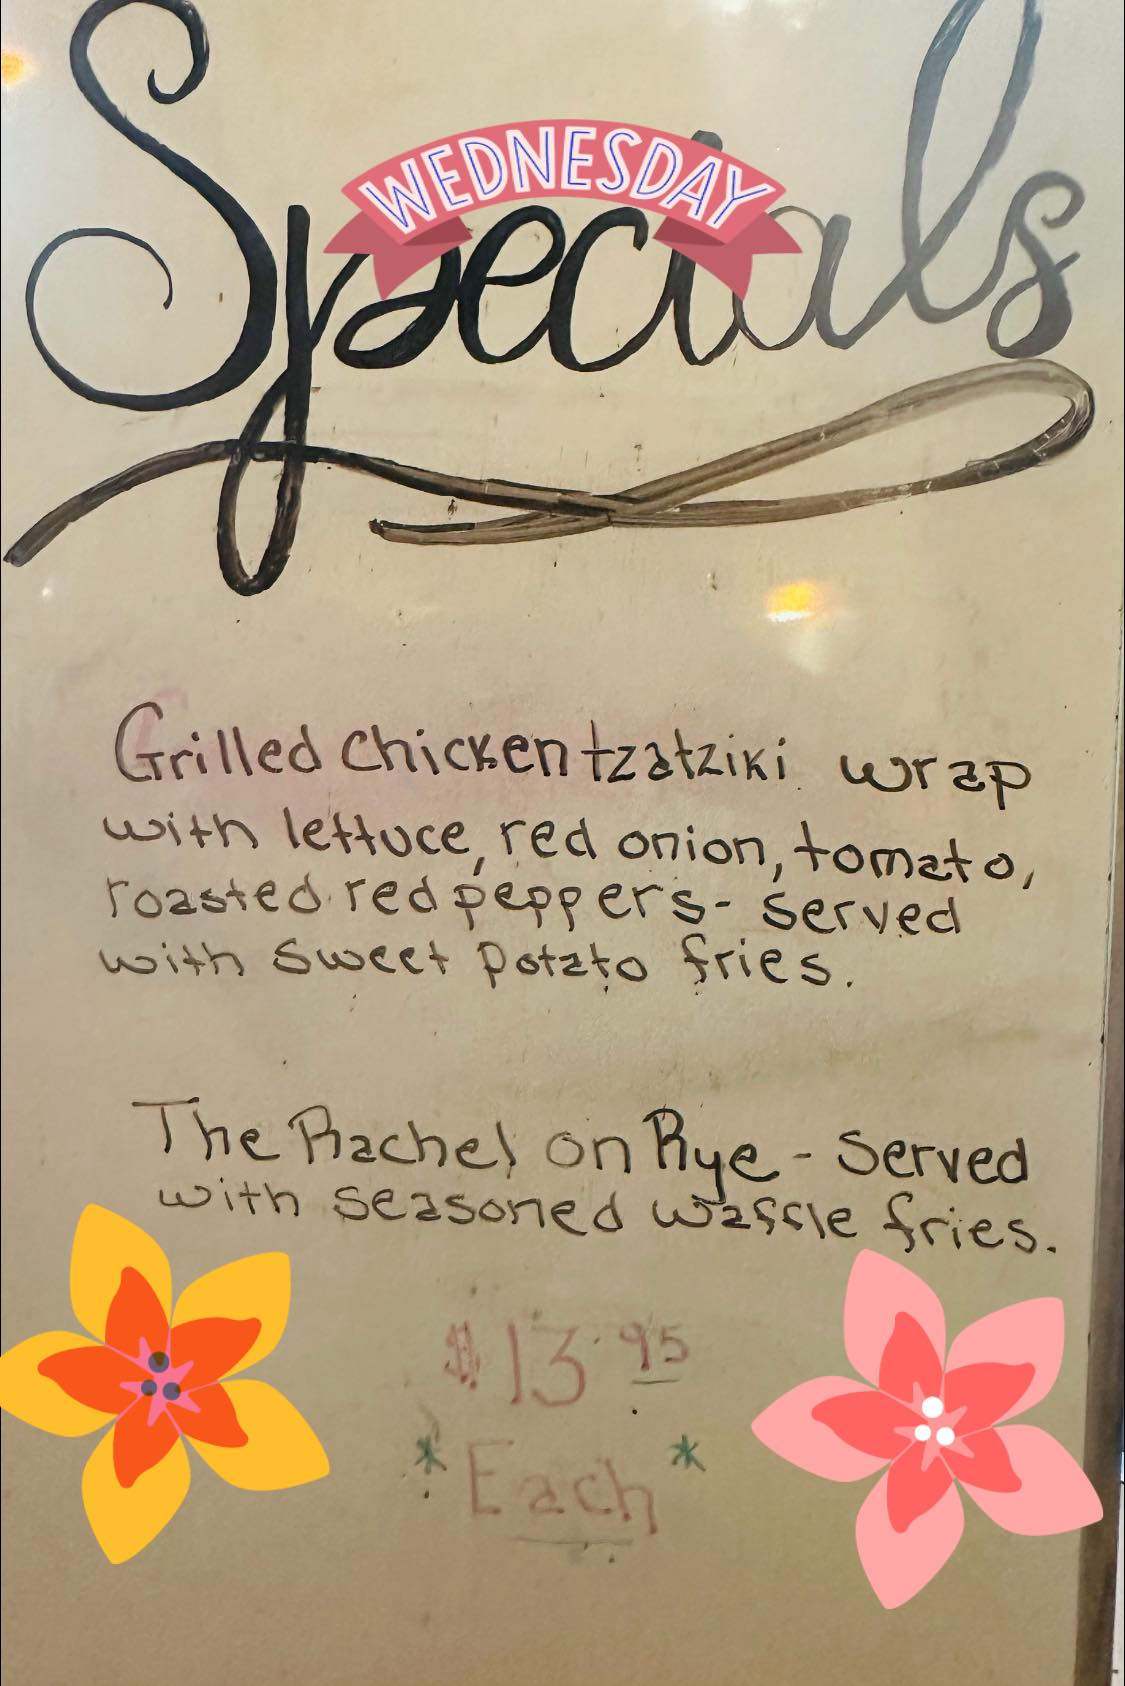 WEDNESDAY
Specials
Grilled chicken tzatziki wrap
with lettuce, red onion, tomato,
roasted red peppers - served
with sweet potato fries.
The Rachel on Rye - served
with seasoned waffle fries.
$13.95
* Each *